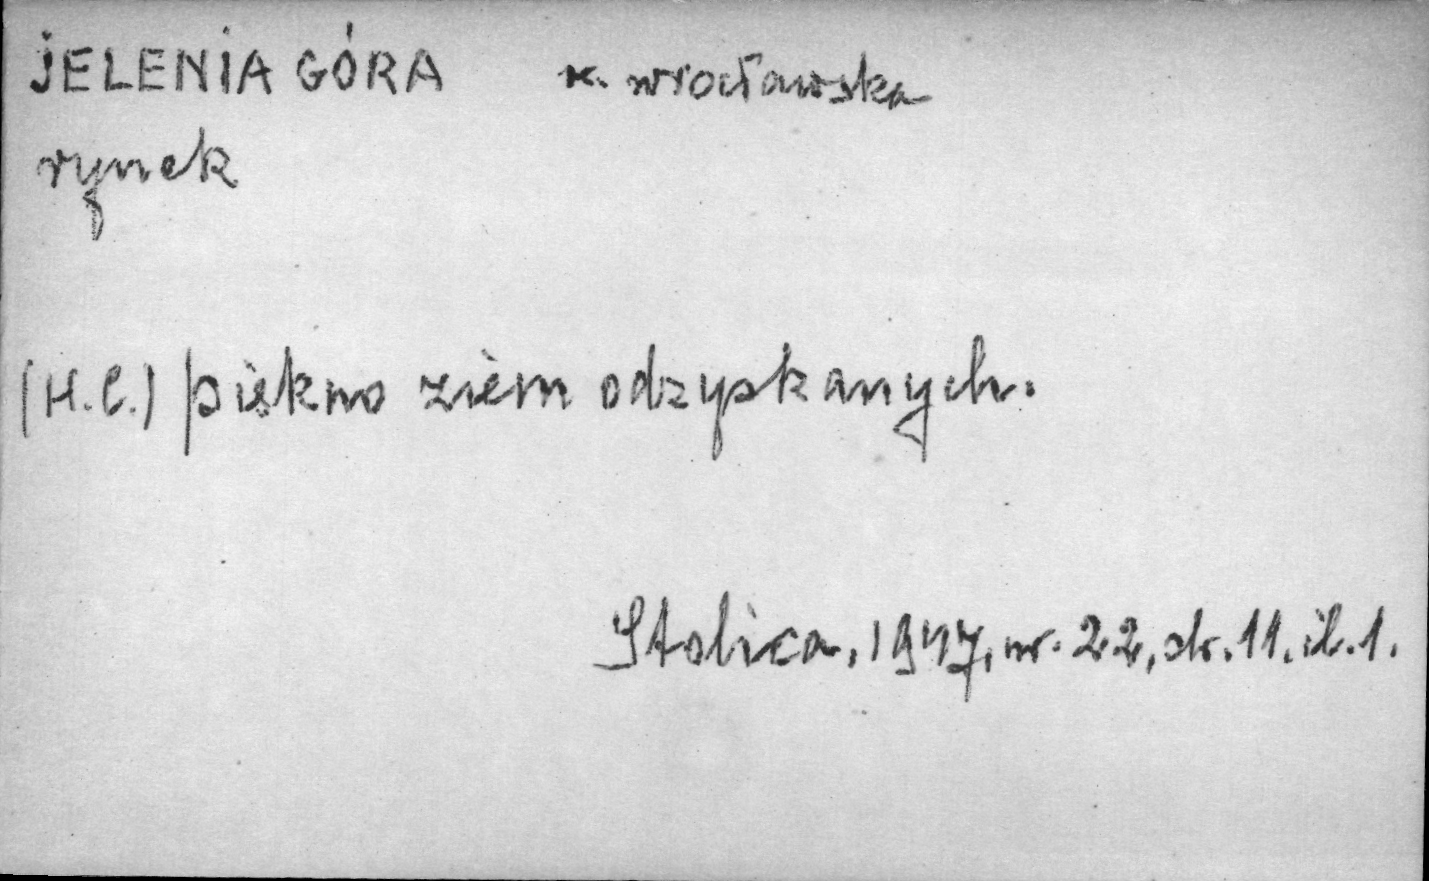 JELENIA GÓRA w. wrocławska
rynek
(H.C.) piękno ziem odzyskanych.
Stolica, 1947, nr. 22, str. 11. il. 1.